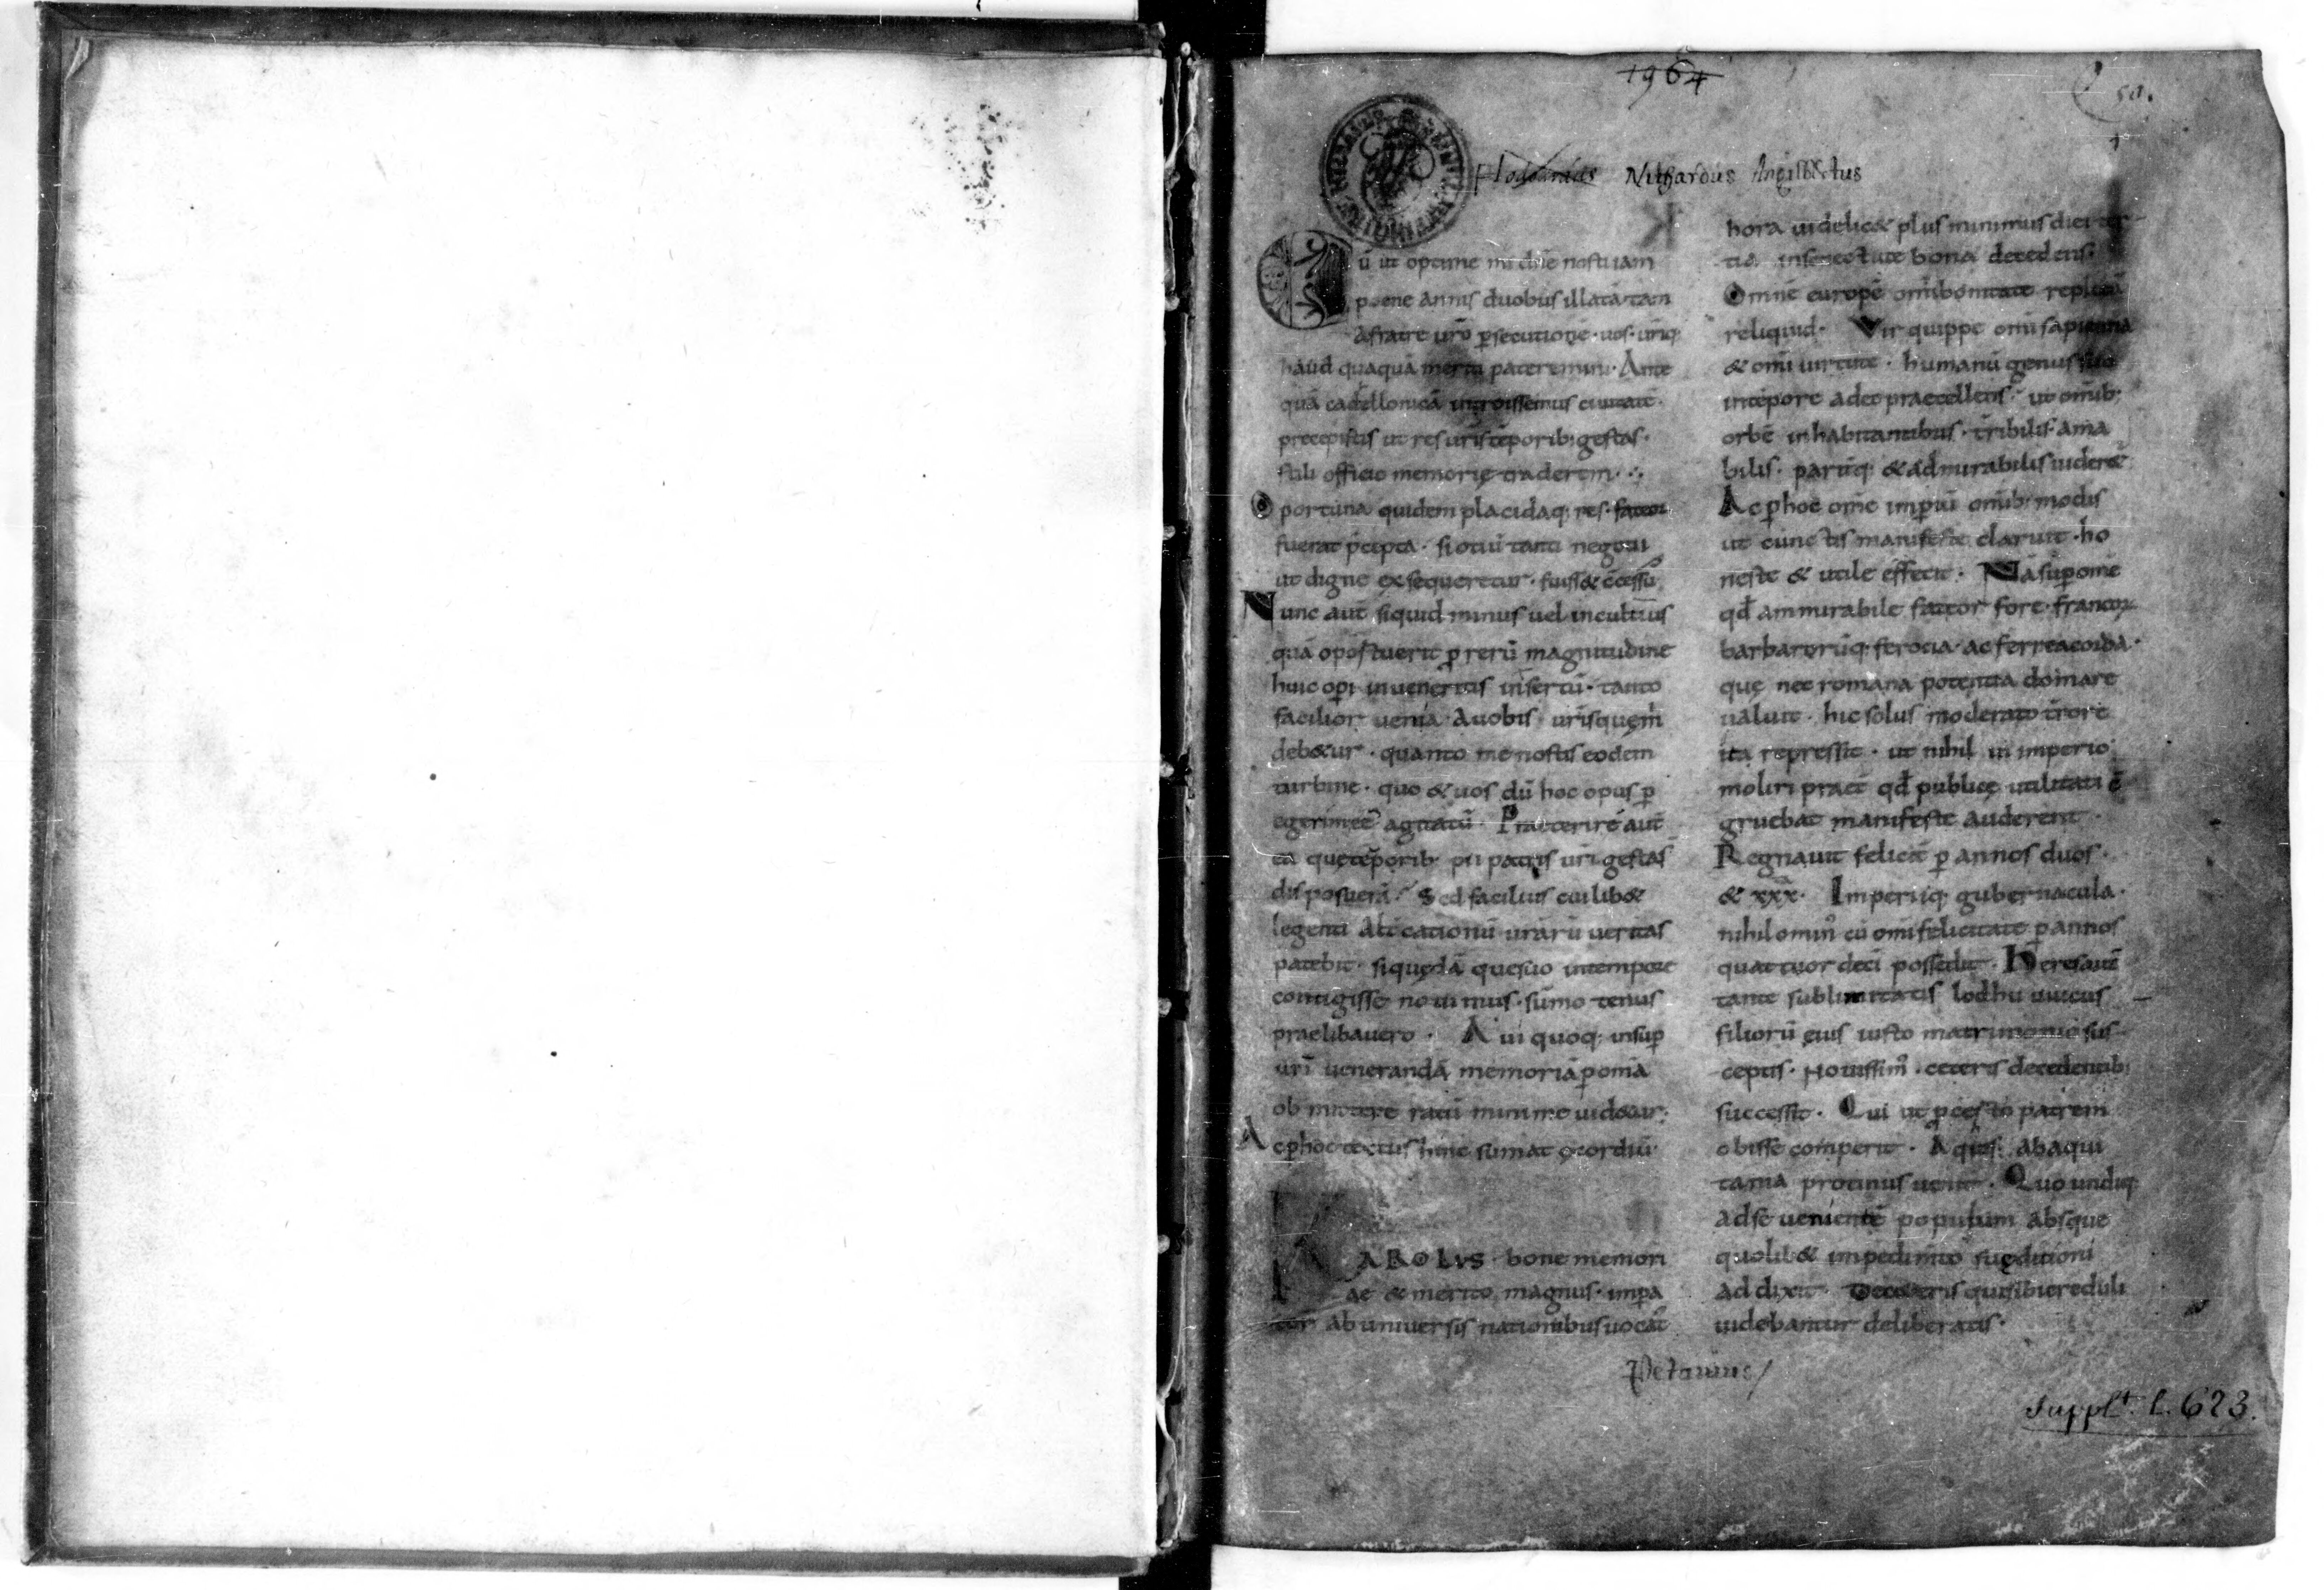 1964
51.
1
Flodoardus Nithardus Angilbertus
Cū ut optime mi dñe nostis iam
poene annis duobus illatā tam
a fratre urō ꝑsecutionē · uos · urīq;
haud quaquā meriti pateremini · Ante
quā cadellonicā introissemus ciuitatē ·
precepistis ut res uris tēporib; gestas ·
stili officio memorię traderem ·
Oportuna quidem placidaq; res · fateor
fuerat p̄cepta · si otiū tanti negotii
ut digne exsequeretur · fuiss& c̄cessū
Nunc aut̄ siquid minus uel incultius
quā oportuerit p̄ rerū magnitudine
huic oꝑi inueneritis insertū · tanto
facilior uenia a uobis urisque m̄
deb&ur · quanto me nostis eodem
turbine · quo & uos dū hoc opus ꝑ
egerim ēē agitatū · Praeterire aut̄
ea que tēporib; pii patris uri gestas
disposuerā · Sed facilius cuilib&
legenti altcationū urarū ueritas
patebit · si quędā que suo in tempore
contigisse nouimus · sūmo tenus
praelibauero · Aui quoq; insuꝑ
uri uenerandā memoriā ꝑ omia
obmittere ratū minime uid&ur ·
Ac ꝑ hoc tectus hinc sumat exordiū
KAROLVS bone memori
ae & merito magnus · impa
tor ab uniuersis nationibus uocat᷒
hora uidelic& plus minimus diei ter
tia in senectute bona decedens ·
Omnē europē omī bonitate repletā
reliquid · Vir quippe omi sapientia
& omi uirtute · humanū genus suo
in tēpore adeo praecellens · ut omib;
orbē inhabitantibus · t̄ribilis · ama
bilis · parit̄q; & admirabilis uider&
Ac ꝑ hoc om̄e imꝑiū omib; modis
ut cunctis manifeste claruit · ho
neste & utile effecit · Nā suꝑ om̄e
qd̄ ammirabile fateor fore · francoꝝ
barbarorūq; ferocia · ac ferrea corda ·
quę nec romana potentia domare
ualuit · hic solus moderato t̄rore
ita repressit · ut nihil in imperio
moliri praet̄ qd̄ publicę utilitati c̄
gruebat manifeste auderent ·
Regnauit felicit̄ ꝑ annos duos ·
& xxxᵃ · Imperiiq; gubernacula ·
nihilomin᷒ cū omi felicitate ꝑ annos
quattuor deci possedit · Heres aut̄
tante sublimitatis lodhuuuicus
filiorū eius iusto matrimonio sus
ceptis · Nouissim᷒ · ceteris decedentib;
successit · Qui ut ꝑ certo patrem
obisse comperit · Aquis ab aqui
tania protinus uenit · Quo undiq;
ad se ueniente populum absque
quolib& impedimto suę ditioni
addixit · De ceteris qui sibi creduli
uidebantur deliberatis ·
Petauius
Supplᵗ. l. 623.